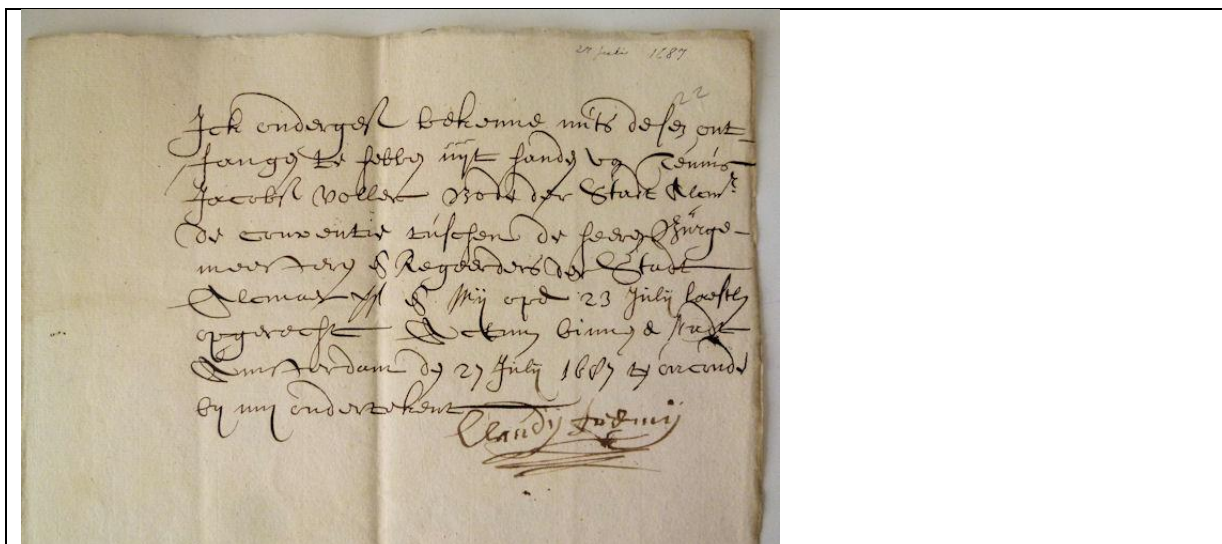 27 julij 1687
22
Ick ondergesl bekenne mits desen ont-
fangen te hebben uijt handen van Teunis
Jacobsl Bode der Stadt Alcmr
de conventie tusschen de heeren Burge-
meesteren & Regeerders der Stadt
Alcmaer & Mij op de 23 Julij laestle
opgerecht Actum binnen de stadt
Amsterdam den 27 Julij 1687 t'oirconde
bij mij onderteekent